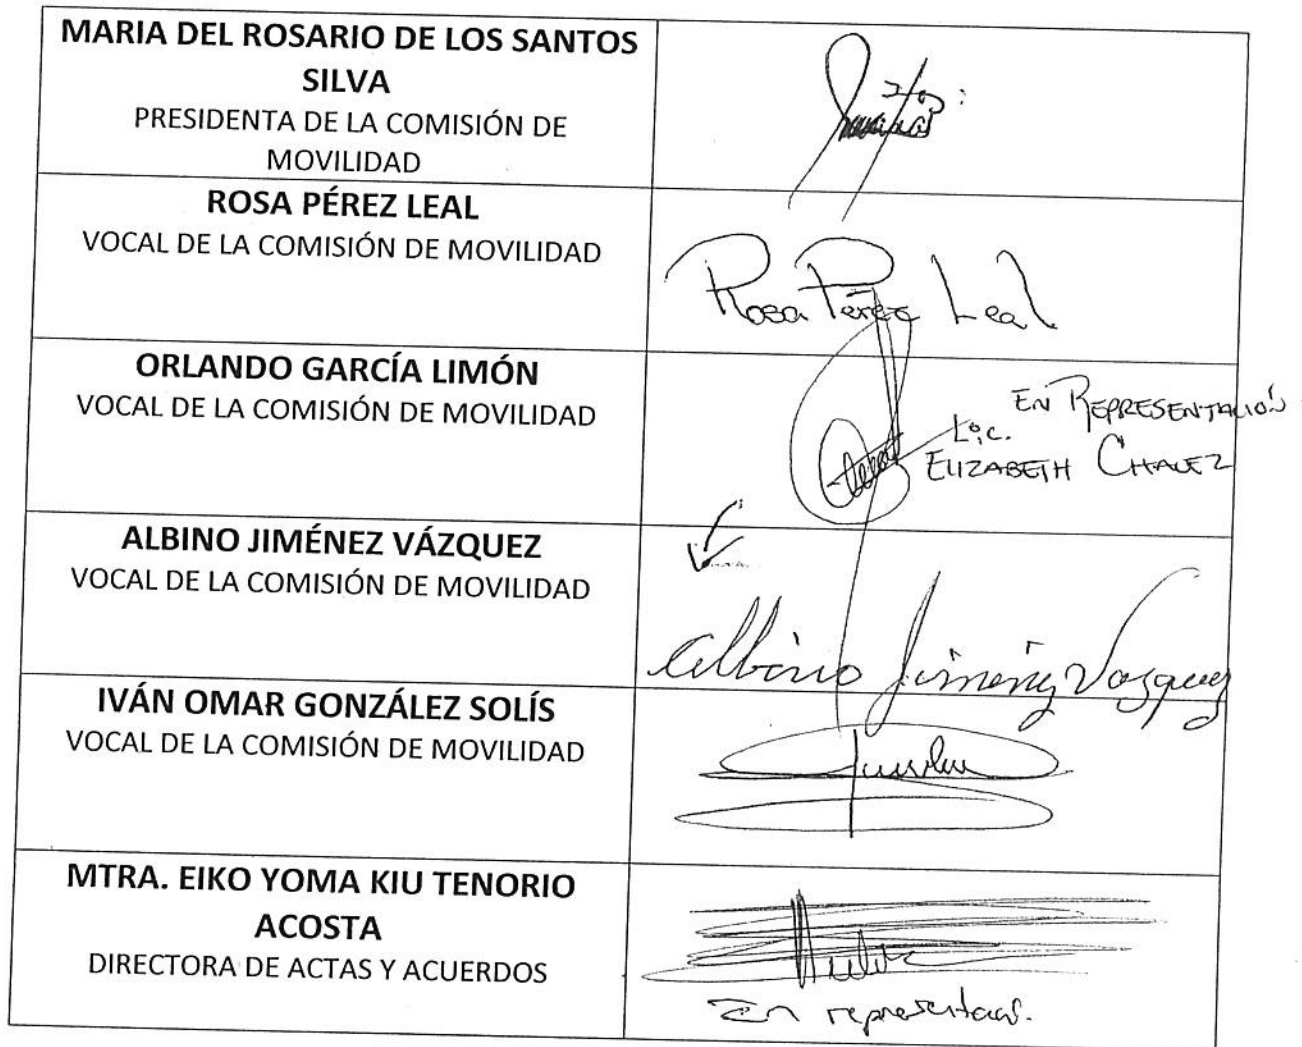 MARIA DEL ROSARIO DE LOS SANTOS
SILVA
PRESIDENTA DE LA COMISIÓN DE
MOVILIDAD
ROSA PÉREZ LEAL
VOCAL DE LA COMISIÓN DE MOVILIDAD
Rosa Pérez Leal
ORLANDO GARCÍA LIMÓN
VOCAL DE LA COMISIÓN DE MOVILIDAD
EN REPRESENTACIÓN
Lic.
ELIZABETH CHAVEZ
ALBINO JIMÉNEZ VÁZQUEZ
VOCAL DE LA COMISIÓN DE MOVILIDAD
Albino Jiménez Vazquez
IVÁN OMAR GONZÁLEZ SOLÍS
VOCAL DE LA COMISIÓN DE MOVILIDAD
MTRA. EIKO YOMA KIU TENORIO
ACOSTA
DIRECTORA DE ACTAS Y ACUERDOS
En representación.